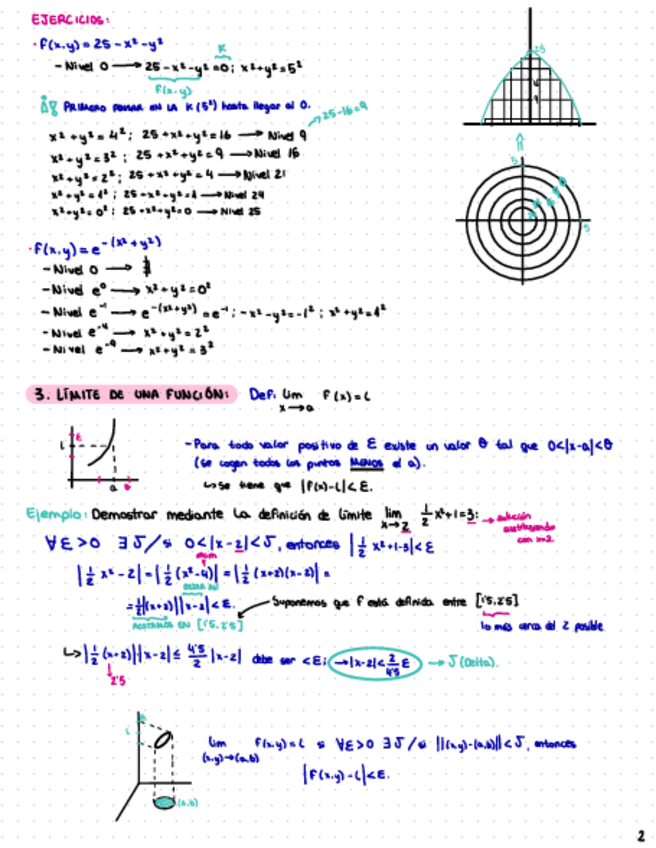 EJERCICIOS:
· F(x,y) = 25 - x² - y²
- Nivel 0 → 25 - x² - y² = 0; x² + y² = 5²
K
F(x,y)
PRIMERO PENSAR EN LA K (5²) hasta llegar al 0.
25-16=9
x² + y² = 4²; 25 + x² + y² = 16 → Nivel 9
x² + y² = 3²; 25 + x² + y² = 9 → Nivel 16
x² + y² = 2²; 25 + x² + y² = 4 → Nivel 21
x² + y² = 1²; 25 - x² + y² = 1 → Nivel 24
x² + y² = 0²; 25 + x² + y² = 0 → Nivel 25
25
16
9
5
5
· F(x,y) = e^-(x² + y²)
- Nivel 0 → ∄
- Nivel e⁰ → x² + y² = 0²
- Nivel e⁻¹ → e^-(x²+y²) = e⁻¹; -x² - y² = -1²; x² + y² = 1²
- Nivel e⁻⁴ → x² + y² = 2²
- Nivel e⁻⁹ → x² + y² = 3²
3. LÍMITE DE UNA FUNCIÓN: Def: lim x→a F(x) = L
L
a
- Para todo valor positivo de ε existe un valor θ tal que 0<|x-a|<θ
(se cogen todos los puntos MENOS el a).
↳ Se tiene que |F(x)-L| < ε.
Ejemplo: Demostrar mediante la definición de límite lim x→2 ½x²+1=3: → solución
sustituyendo
con x=2.
∀ε>0 ∃δ/si 0<|x-2|<δ, entonces |½x²+1-3|<ε
|½x²-2| = |½(x²-4)| = |½(x+2)(x-2)| =
= ½|(x+2)||x-2| < ε. Suponemos que f está definida entre [1'5,2'5]
ACOTAMOS EN [1'5,2'5]
lo más cerca del 2 posible
↳ |½(x+2)||x-2| ≤ 4'5/2 |x-2| debe ser < ε; → |x-2| < 2/4'5 ε → δ (Delta).
2'5
L
(a,b)
lim (x,y)→(a,b) F(x,y) = L si ∀ε>0 ∃δ/si ||(x,y)-(a,b)||<δ, entonces
|F(x,y)-L|<ε.
2